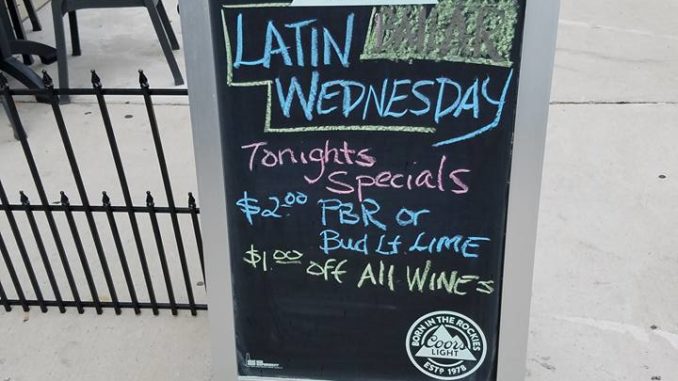 LATIN
WEDNESDAY
Tonights
Specials
$2.00 PBR or
Bud Lt. LIME
$1.00 off All WINES
BORN IN THE ROCKIES
Coors
LIGHT
ESTD 1978